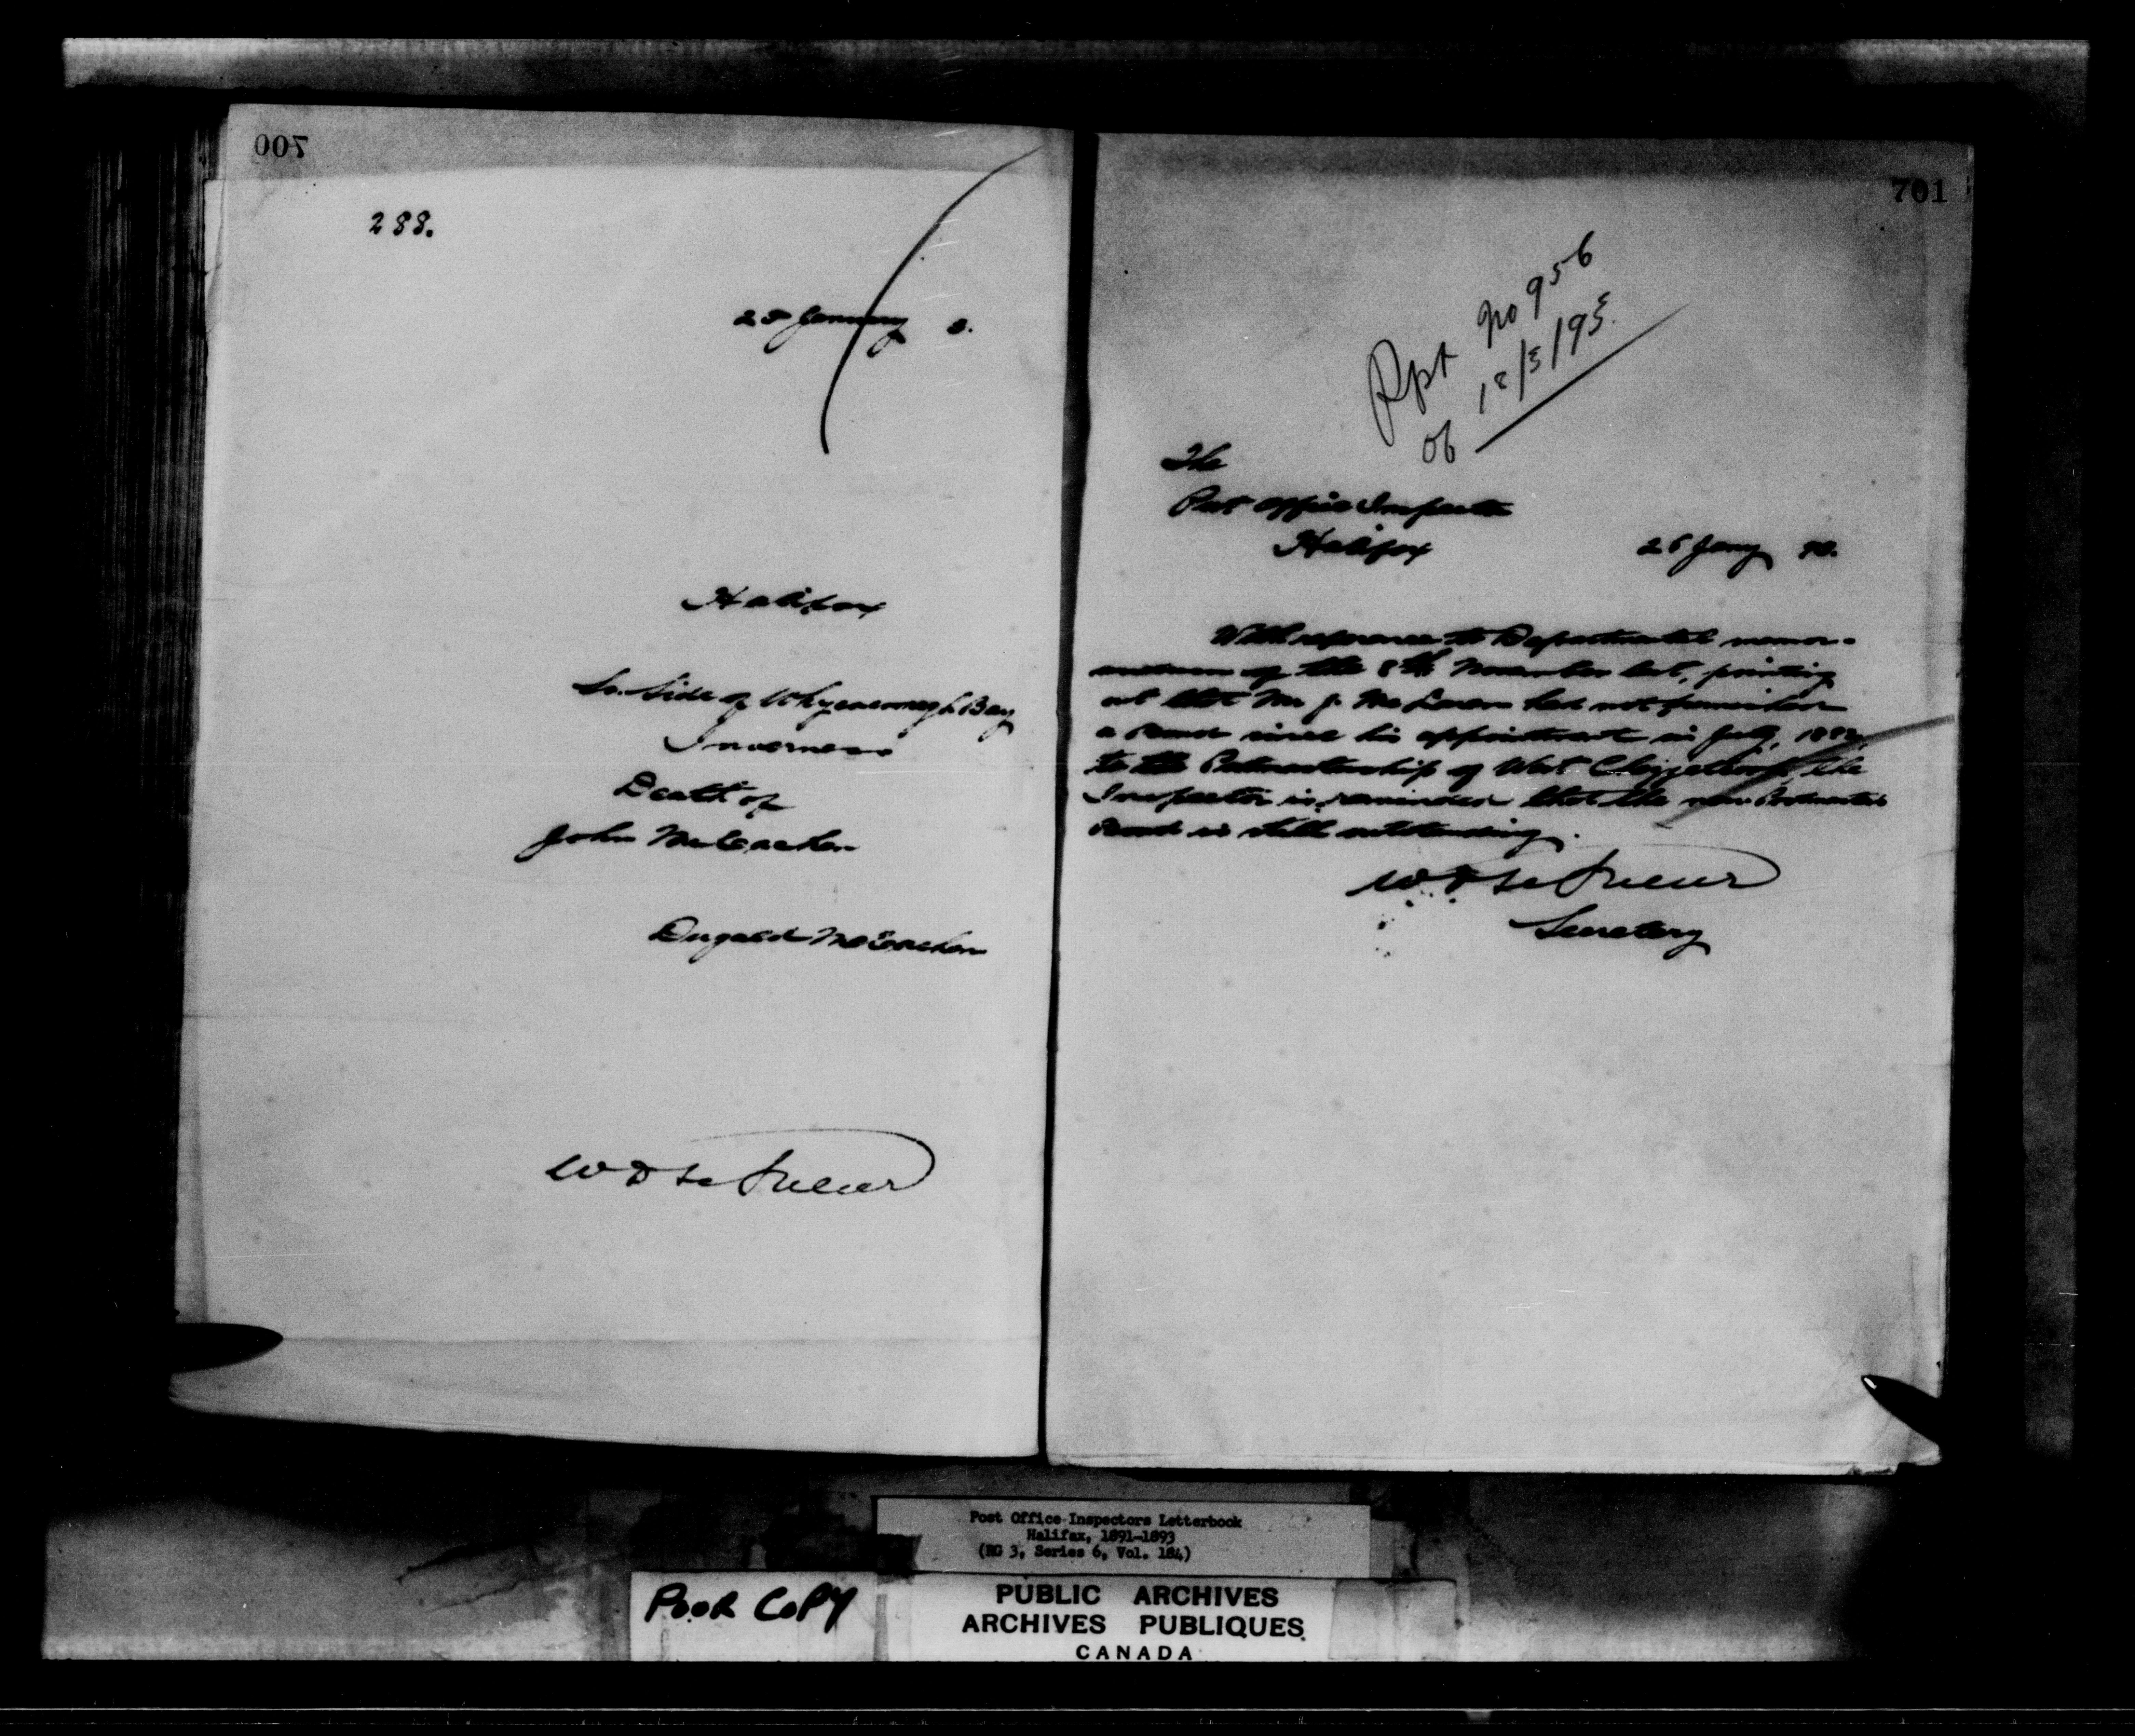 700
288.
25 January 3.
Halifax
So. Side of Whycocomagh Bay
Inverness
Death of
John McEachen
Dugald McEachen
W D LeSueur
701
Rpt No 956
of 18/3/93
The
Post Office Inspector
Halifax
26 Jany 93.
With reference to Departmental memor-
andum of the 8th November last, pointing
out that Mr J. McLaren had not furnished
a Bond since his appointment in July, 1882,
to the Postmastership of West the
Inspector is reminded that the new Postmaster's
Bond is still outstanding.
W D LeSueur
Secretary
Post Office Inspectors Letterbook
Halifax, 1891-1893
(RG 3, Series 6, Vol. 184)
POOR COPY
PUBLIC ARCHIVES
ARCHIVES PUBLIQUES
CANADA